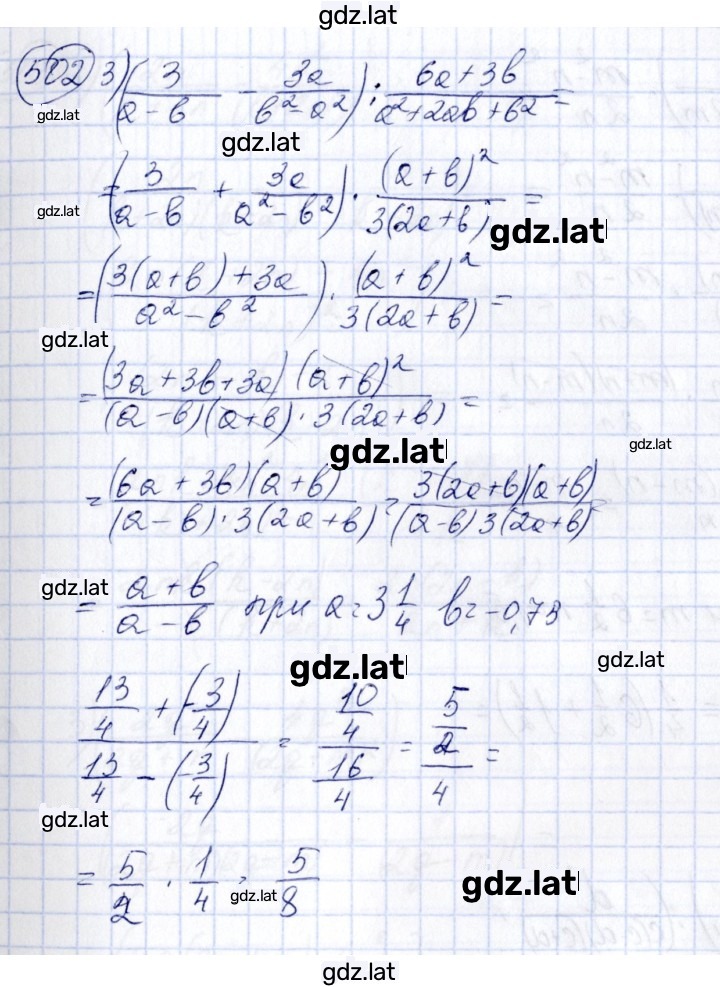 gdz.lat
502 3) (3/(a-b) - 3a/(b²-a²)) : (6a+3b)/(a²+2ab+b²) =
gdz.lat
gdz.lat
= (3/(a-b) + 3a/(a²-b²)) · (a+b)²/(3(2a+b)) =
gdz.lat
gdz.lat
= ((3(a+b)+3a)/(a²-b²)) · (a+b)²/(3(2a+b)) =
gdz.lat
= (3a+3b+3a)(a+b)²/((a-b)(a+b)·3(2a+b)) =
gdz.lat
gdz.lat
= (6a+3b)(a+b)/((a-b)·3(2a+b)) = 3(2a+b)(a+b)/((a-b)3(2a+b)) =
gdz.lat
= (a+b)/(a-b) при a=3 1/4 b=-0,75
gdz.lat
gdz.lat
(13/4 + (-3/4))/(13/4 - (-3/4)) = (10/4)/(16/4) = (5/2)/4 =
gdz.lat
= 5/2 · 1/4 = 5/8
gdz.lat
gdz.lat
gdz.lat